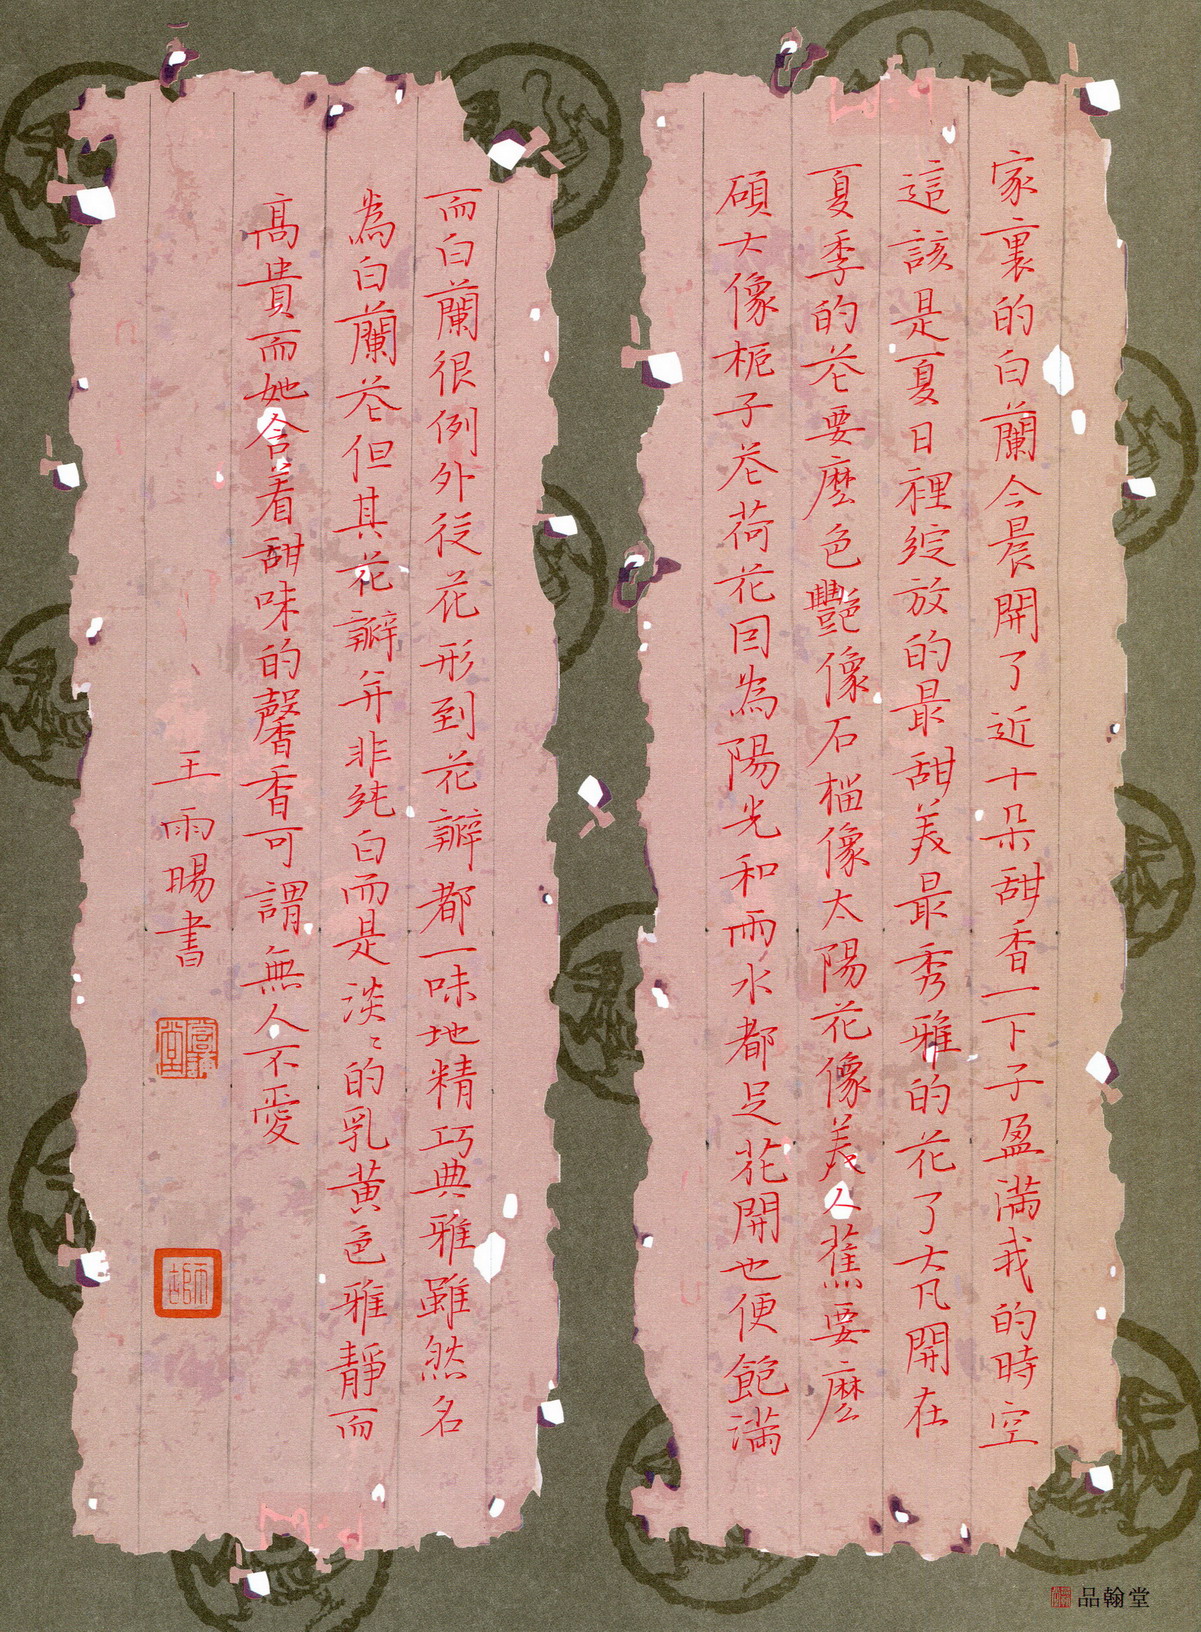 家裏的白蘭今晨開了近十朵甜香一下子盈滿我的時空
這該是夏日裡綻放的最甜美最秀雅的花了大凡開在
夏季的花要麼色豔像石榴像太陽花像美人蕉要麼
碩大像梔子花荷花因為陽光和雨水都足花開也便飽滿
而白蘭很例外從花形到花瓣都一味地精巧典雅雖然名
為白蘭花但其花瓣并非純白而是淡〻的乳黃色雅靜而
高貴而她含着甜味的馨香可謂無人不愛
王雨暘書
品翰堂